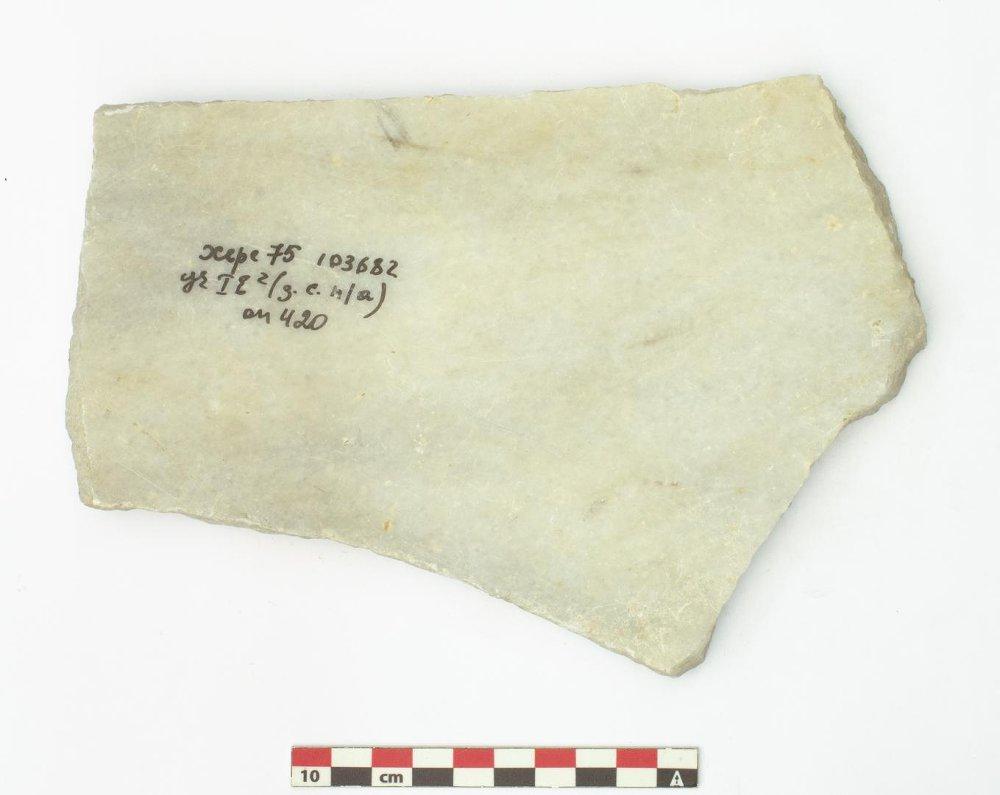 херс 75 103682
уч I Е² (з. с. н/а)
оп 420
10 cm
A